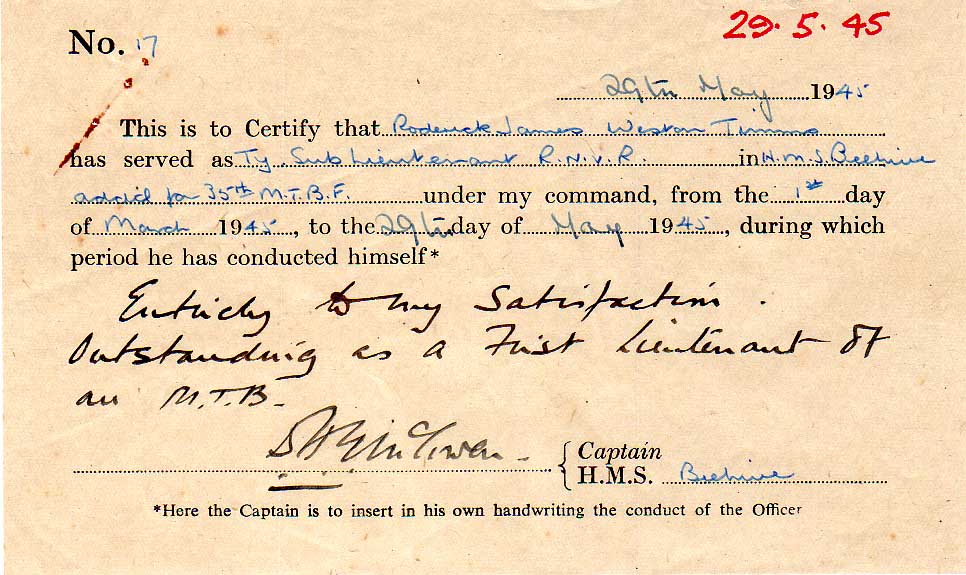 No. 17
29.5.45
29th May 1945
This is to Certify that Roderick James Weston Timms
has served as Ty. Sub Lieutenant R.N.V.R. in H.M.S. Beehive
add'l for 35th M.T.B.F. under my command, from the 1st day
of March 1945, to the 29th day of May 1945, during which
period he has conducted himself*
Entirely to my Satisfaction.
Outstanding as a First Lieutenant of
an M.T.B.
Captain
H.M.S. Beehive
*Here the Captain is to insert in his own handwriting the conduct of the Officer